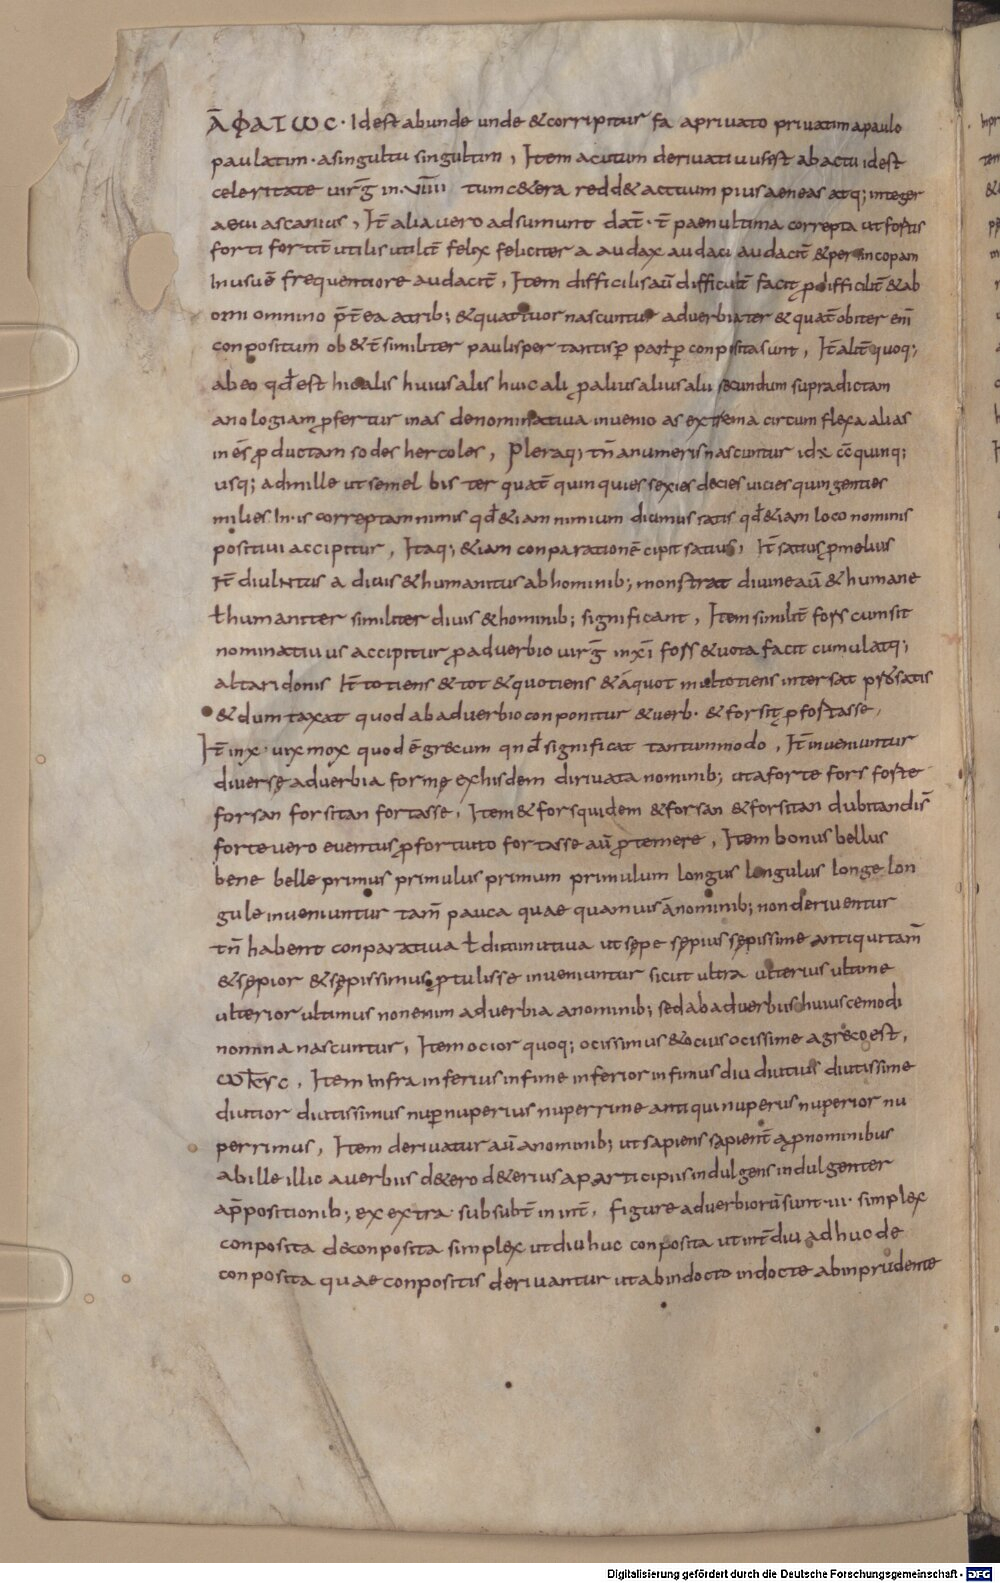 ĀΦΑΤѠϹ · Idest abunde unde &corripitur fa a privato privatim a paulo
paulatim · asingultu singultim , Item acutum derivativusest ab actu idest
celeritate virḡ in · VIIII tum c&era redd& actuum pius aeneas atq; integer
aevi ascanius , It̄ alia vero adsumunt dat̄ · t̄ paenultima correpta ut fortis
forti fortit̄ utilis utilit̄ felix feliciter a audax audaci audacit̄ &per sincopam
In usuē frequentiore audacit̄ , Item difficilis aū difficult̄ facit ꝓ difficilit̄ &ab
omi omnino p̄t̄ ea atrib; &quattuor nascuntur adverbia ter &quat̄ obiter enī
conpositum ob &t̄ similiter paulisper tantisꝑ conposita sunt , It̄ alit̄ quoq;
ab eo qđ est hic alis huius alis huic ali ꝓ alius alius alii secundum supradictam
anologiam ꝓfertur inas denominativa invenio as extrema circumflexa alias
in ēs ꝓductam sodes hercoles , Pleraq; tn̄ anumeris nascuntur quinq;
usq; admille ut semel bis ter quat̄ quinquies sexies decies vicies quingenties
milies In·is correptam nimis qđ &iam nimium dicimus satis qđ &iam loco nominis
positivi accipitur , Itaq; &iam conparationē cipit satius , It̄ satius ꝓ melius
It̄ divintus a divis &humanitus ab hominib; monstrat divine aū &humane
ł humaniter similiter divis &hominib; significant , Item similit̄ fors cum sit
nominativus accipitur ꝓ adverbio virḡ in xī fors &vota facit cumulatq;
altaria donis It̄ totiens &tot &quotiens &aquot multotiens intersat satis
&dum taxat quod ab adverbio conponitur &verb · &forsit ꝓ fortasse ,
It̄ in x · vix mox quod ē grecum qnđ significat tantummodo , It̄ inveniuntur
diversę adverbia formę exhisdem dirivata nominib; uta forte fors forte
forsan forsitan fortasse , Item &forsquidem &forsan &forsitan dubitandis̄
forte vero eventus ꝓ fortuito fortasse aū ꝓ temere , Item bonus bellus
bene belle primus primulus primum primulum longus longulus longe lon
gule inveniuntur tam̄ pauca quae quamuis anominib; non deriventur
tn̄ habent conparativa ł diminutiva ut sępe sępius sępissime antiquitam̄
&sępior &sępissimus ꝓtulisse inveniuntur sicut ultra ulterius ultime
ulterior ultimus non enim adverbia anominib; sed ab adverbiis huiuscemodi
nomina nascuntur , Item ocior quoq; ocissimus &ocius ocissime agręco est ,
Item infra inferius infime inferior infimus diu diutius diutissime
diutior diutissimus nuꝑ nuperius nuperrime antiqui nuperus nuperior nu
perrimus , Item derivatur aū anominib; ut sapiens sapient̄ a ꝓnominibus
ab ille illic averbiis d&ero d&erius aparticipiis indulgens indulgenter
ap̄positionib; ex extra · sub subt̄ in int̄ , figure adverbiorū sunt · iii · simplex
conposita deconposita simplex ut diu huc conposita ut int̄diu adhuc de
conposita quae conpositis derivantur ut ab indocto indocte abinprudente
Digitalisierung gefördert durch die Deutsche Forschungsgemeinschaft - DFG